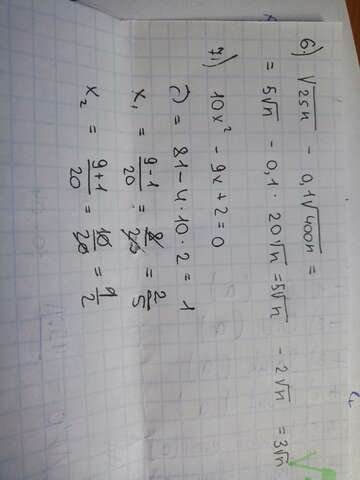 6.) √25n - 0,1√400n =
= 5√n - 0,1 · 20√n = 5√n - 2√n = 3√n
7.) 10x² - 9x + 2 = 0
D = 81 - 4 · 10 · 2 = 1
x₁ = (9-1)/20 = 8/20 = 2/5
x₂ = (9+1)/20 = 10/20 = 1/2